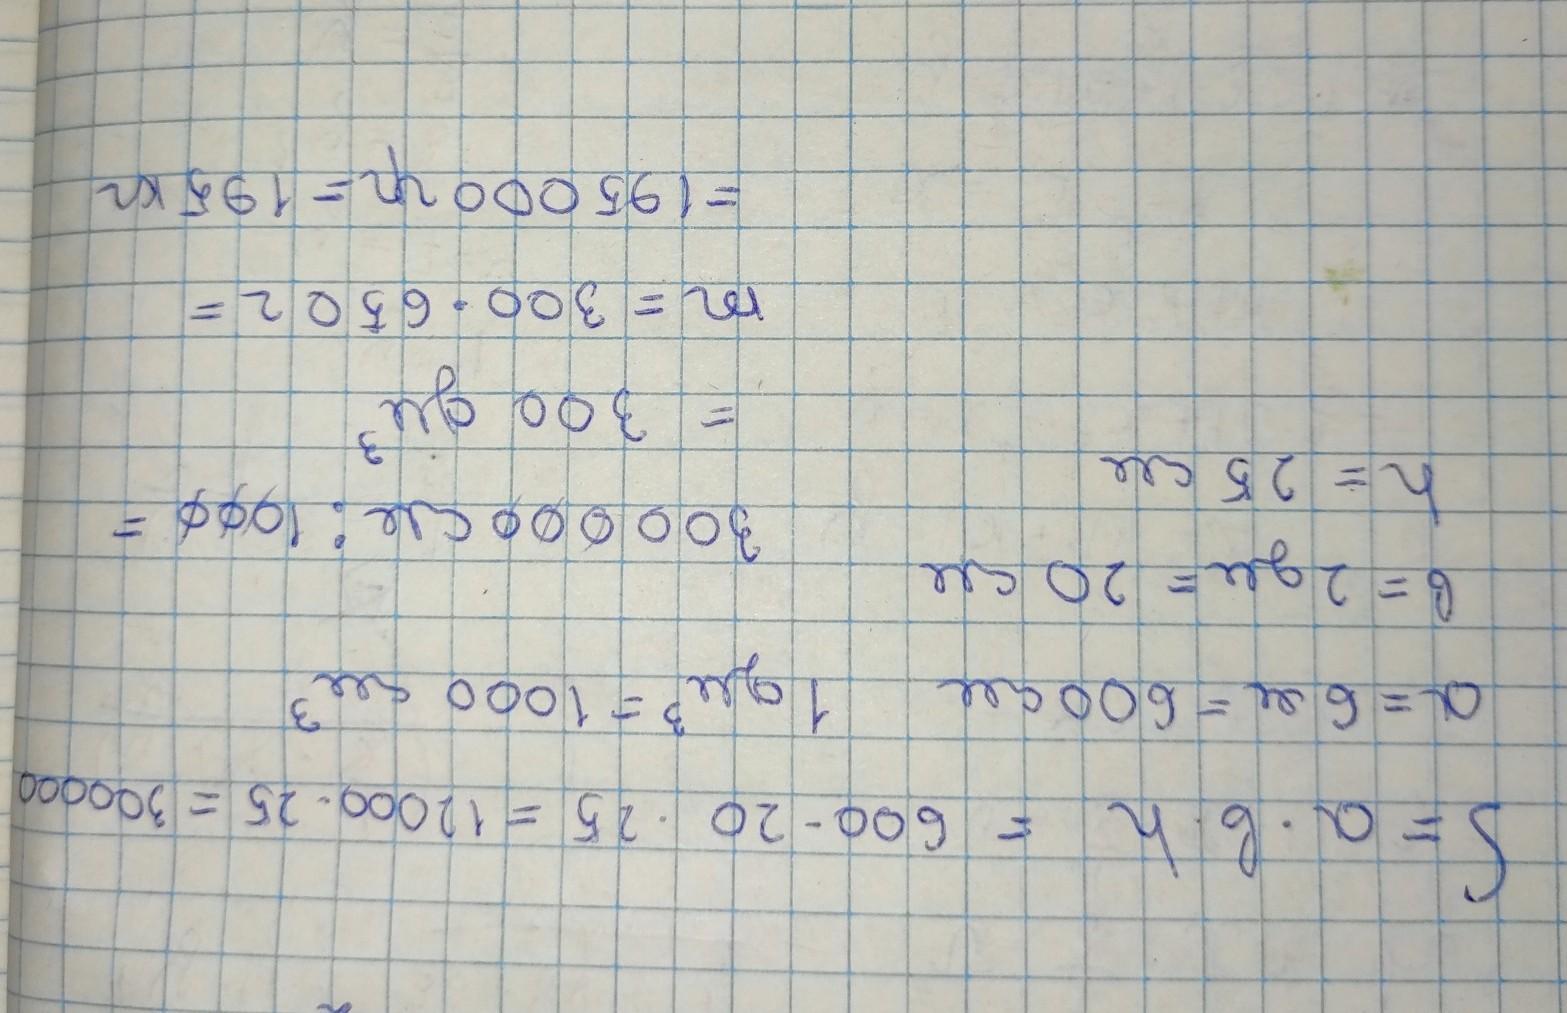 S = a · b · h = 600 · 20 · 25 = 12000 · 25 = 300000
a = 6 м = 600 см 1 дм³ = 1000 см³
b = 2 дм = 20 см
300000 см : 1000 =
h = 25 см
= 300 дм³
m = 300 · 650 г =
= 195000 гр = 195 кг